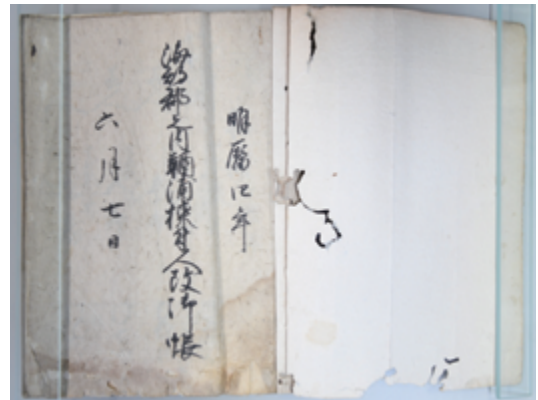 明暦四年
海部郡之内鞆浦棟付人改御帳
六月七日